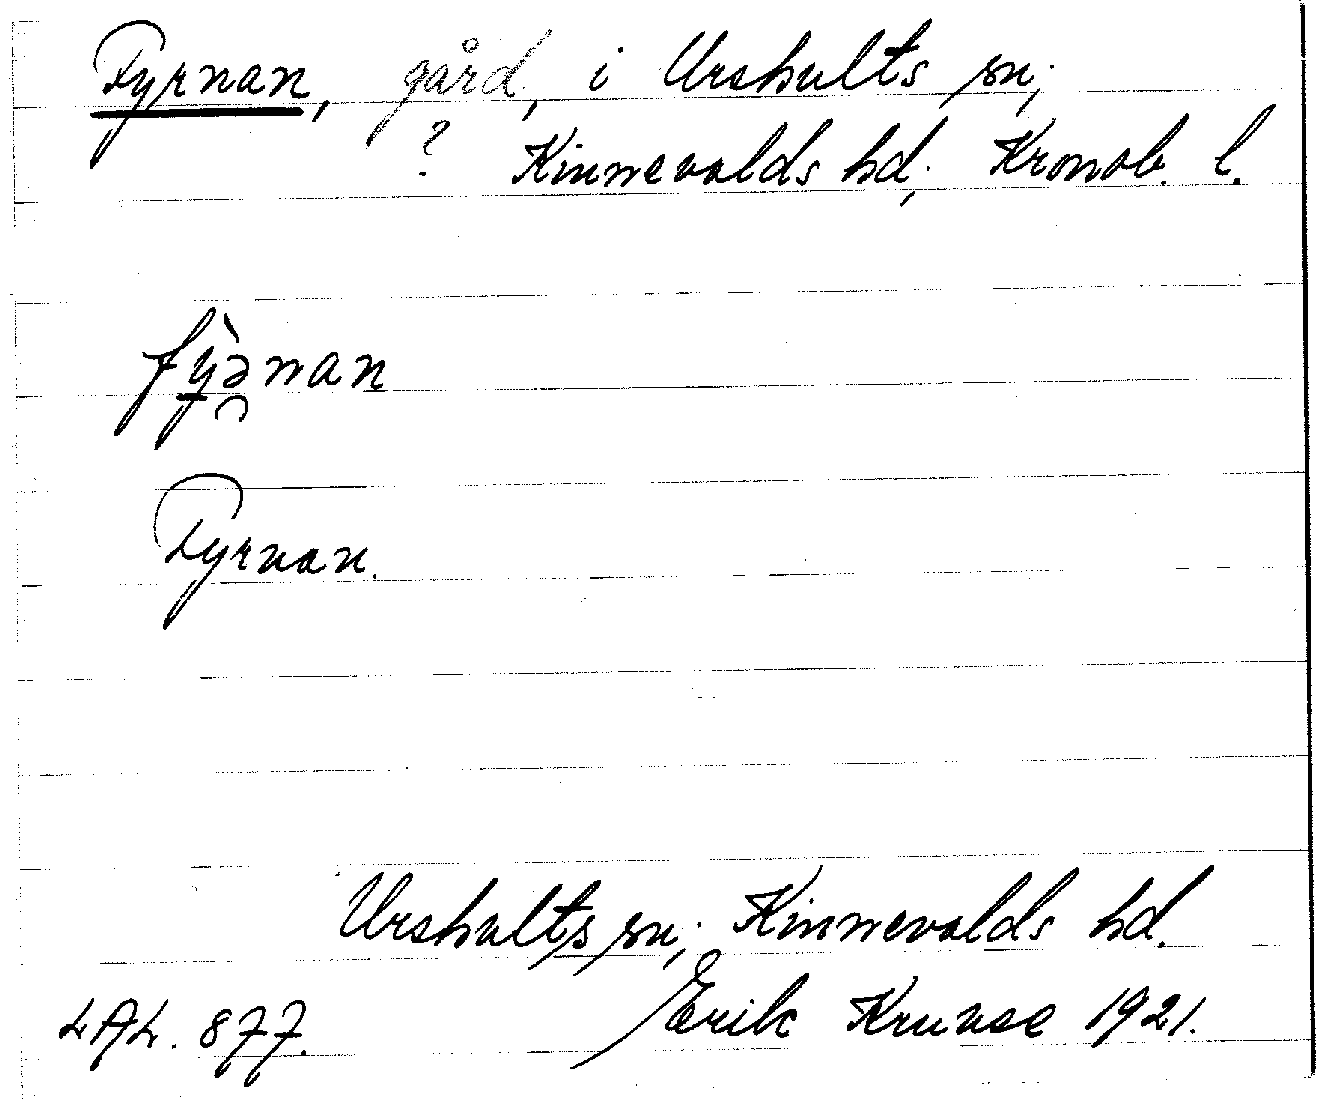 Fyrnan, gård, i Urshults sn;
? Kinnevalds hd; Kronob. l.
fỳ̠ə̯nan
Fyrnan.
Urshults sn; Kinnevalds hd.
LAL. 877. Erik Kruuse 1921.